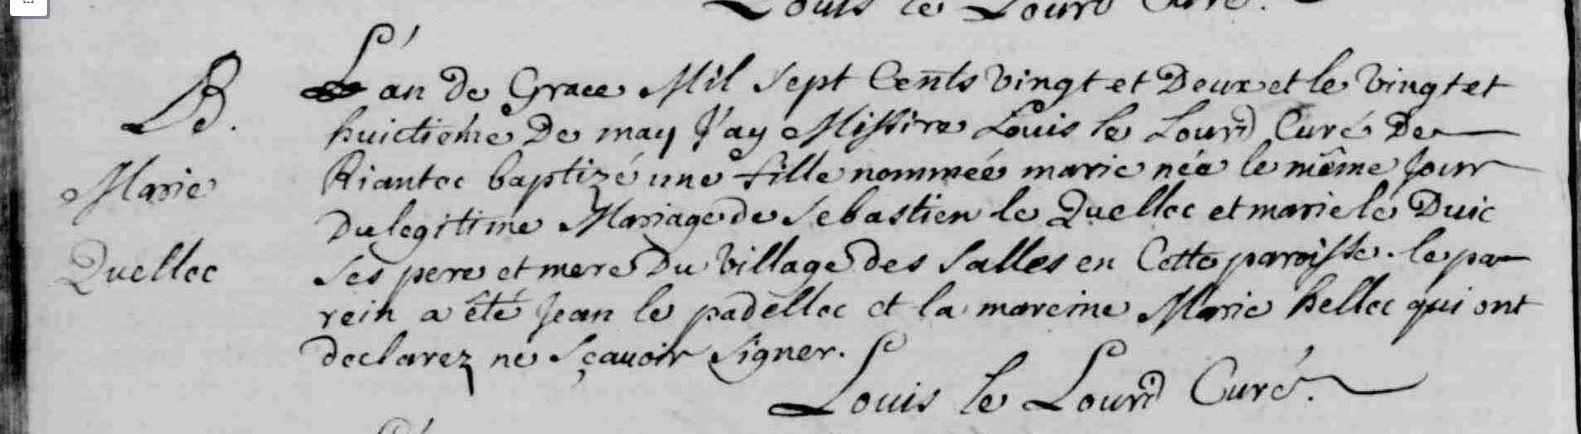 Louis le Lourd Curé.
B.
Marie
Quellec
L'an de Grace Mil Sept Cents Vingt et Deux et le Vingt et
huictiéme De may J'ay Missire Louis le Lourd Curé De
Riantec baptizé une fille nommeé marie née le même Jour
Du legitime Mariage de Sebastien le Quellec et marie le Duic
Ses pere et mere Du Village des Salles en Cette paroisse. le pa-
rein a êté Jean le padellec et la mareine Marie hellec qui ont
declarez ne Sçauoir Signer.
Louis le Lourd Curé.